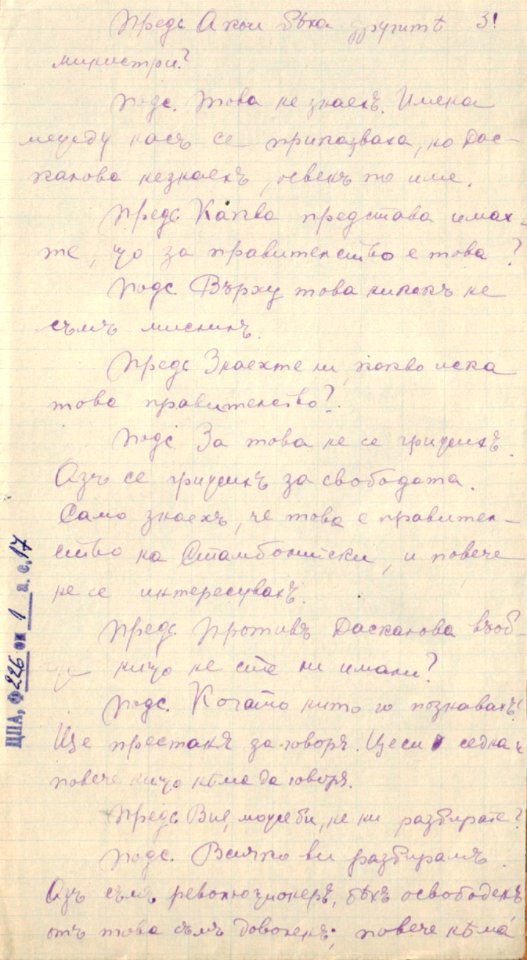 Предс. А кои бѣха другитѣ 31
министри?
Подс. Това не знаехъ. Имена
между насъ се приказваха, но Дас-
калова незнаехъ, освенъ по име.
Предс. Каква представа имах-
те, що за правителство е това?
Подс. Върху това никакъ не
съмъ мислилъ.
Предс. Знаехте ли, какво иска
това правителство?
Подс. За това не се грижилъ.
Азъ се грижилъ за свободата.
Само знаехъ, че това е правител-
ство на Стамболийски, и повече
не се интересувахъ.
Предс. Противъ Даскалова въоб-
що нищо не сте ли имали?
Подс. Когато нито го познавахъ!
Ще престанѫ да говорѫ. Ще си седна и
повече нищо нѣма да говорѫ.
Предс. Вие, може би, не ни разбирате?
Подс. Всичко ви разбирамъ.
Азъ съмъ революционеръ, бѣхъ освободенъ
отъ това съмъ доволенъ; повече нѣма
ЦПА, ф 226 оп 1 а.е. 17